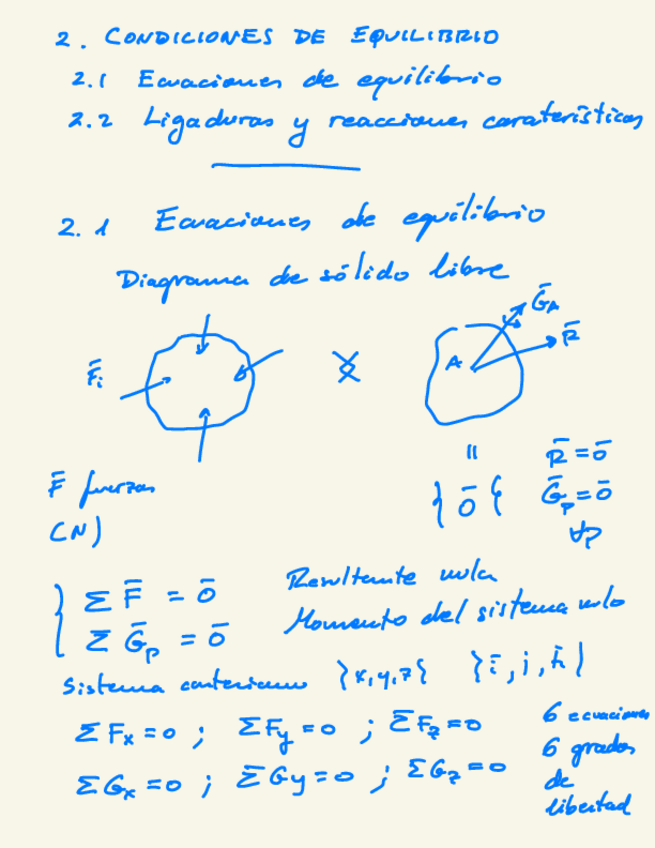 2. CONDICIONES DE EQUILIBRIO
2.1 Ecuaciones de equilibrio
2.2 Ligaduras y reacciones caraterísticas
2.1 Ecuaciones de equilibrio
Diagrama de sólido libre
F̄i
A
ḠA
R̄
=
R̄ = ō
} ō {
Ḡp = ō
∀p
F̄ fuerzas
(N)
{ Σ F̄ = ō
Σ Ḡp = ō
Resultante nula
Momento del sistema nulo
Sistema cartesiano }x,y,z{ }ī, j, k̄{
ΣFx = 0 ; ΣFy = 0 ; ΣFz = 0
ΣGx = 0 ; ΣGy = 0 ; ΣGz = 0
6 ecuaciones
6 grados
de
libertad